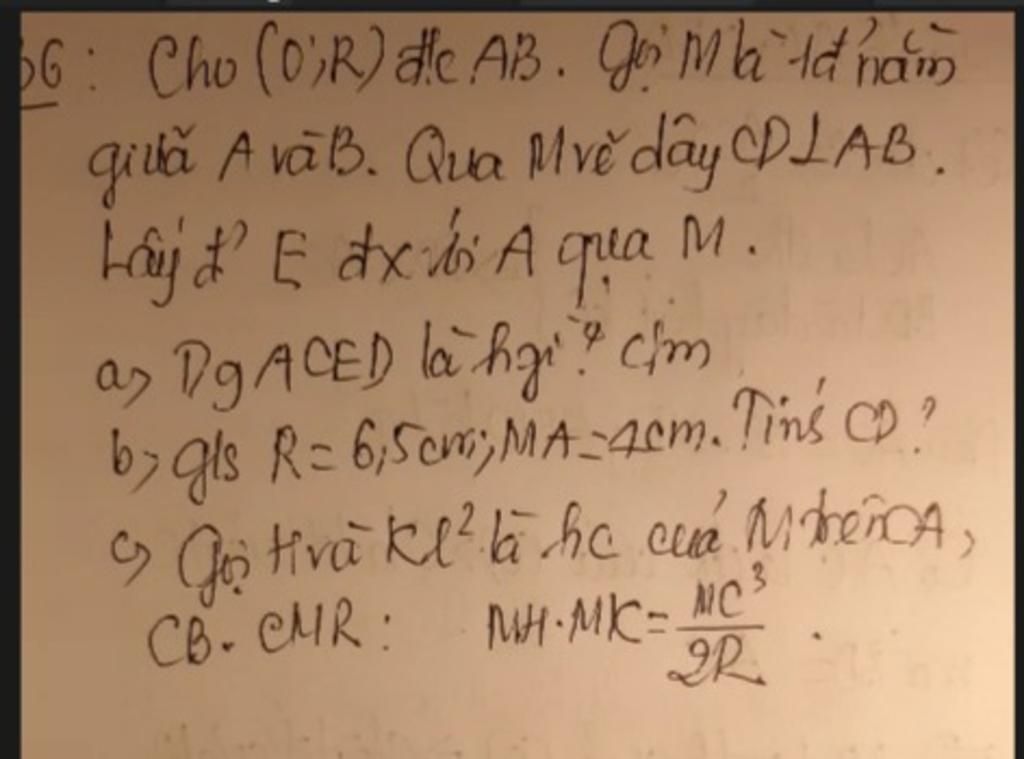 36: Cho (O;R) đk AB. Gọi M là 1 đ' nằm
giữa A và B. Qua M vẽ dây CD⊥AB.
Lấy đ' E đx với A qua M.
a) Tg ACED là h gì? Cm
b) gls R = 6,5cm; MA = 4cm. Tính CD?
c) Gọi H và K l² là hc của M trên CA,
CB. CMR: MH·MK = MC³/2R.